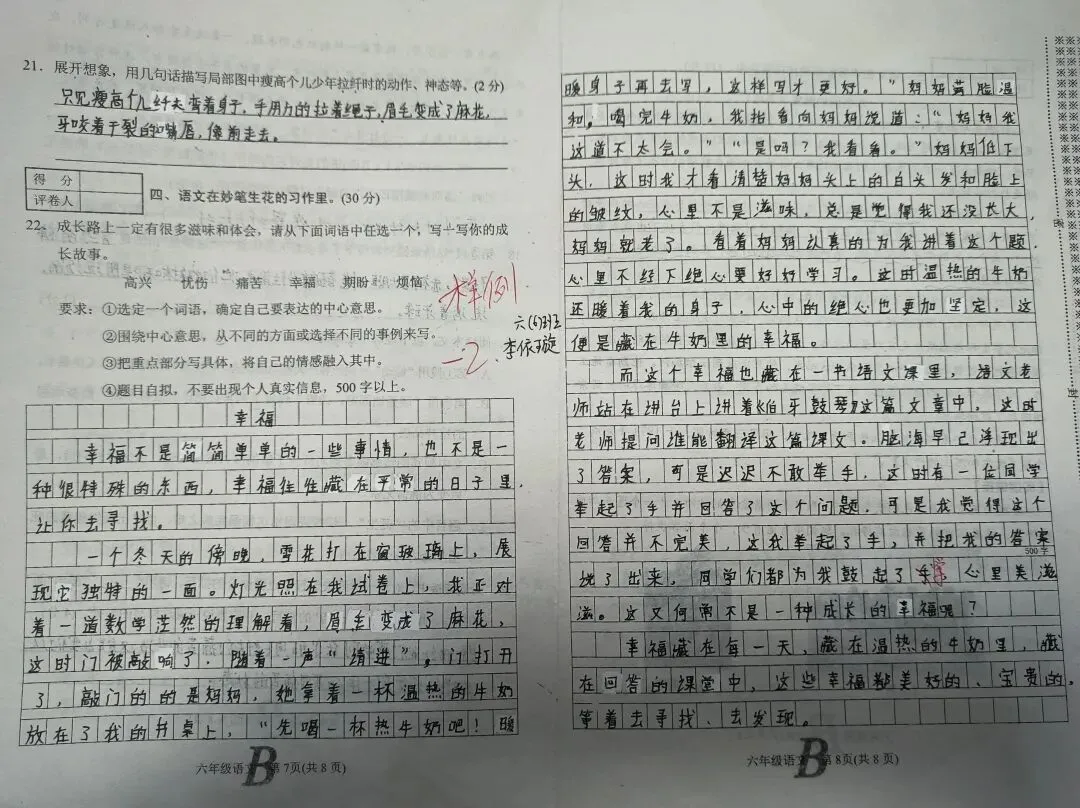 21. 展开想象，用几句话描写局部图中瘦高个儿少年拉纤时的动作、神态等。(2分)
只见瘦高个儿纤夫弯着身子，手用力的拉着绳子，眉毛变成了麻花，
牙咬着干裂的嘴唇，像前走去。
得 分
评卷人
四、语文在妙笔生花的习作里。(30分)
22. 成长路上一定有很多滋味和体会，请从下面词语中任选一个，写一写你的成
长故事。
高兴 忧伤 痛苦 幸福 期盼 烦恼
要求：①选定一个词语，确定自己要表达的中心意思。
②围绕中心意思，从不同的方面或选择不同的事例来写。
③把重点部分写具体，将自己的情感融入其中。
④题目自拟，不要出现个人真实信息，500字以上。
样例
六(6)班
李依璇
-2.
幸福
幸福不是简简单单的一些事情，也不是一
种很特殊的东西，幸福往往藏在平常的日子里，
让你去寻找。
一个冬天的傍晚，雪花打在窗玻璃上，展
现它独特的一面。灯光照在我试卷上，我正对
着一道数学茫然的理解着，眉毛变成了麻花，
这时门被敲响了．随着一声“请进”。门打开
了，敲门的的是妈妈，她拿着一杯温热的牛奶
放在了我的书桌上，“先喝一杯热牛奶吧！暖
六年级语文 B 第7页(共8页)
暖身子再去写，这样写才更好。”妈妈满脸温
和。喝完牛奶，我抬着向妈妈说道：“妈妈我
这道不太会。”“是吗？我看看。”妈妈低下
头，这时我才看清楚妈妈头上的白头发和脸上
的皱纹，心里不是滋味，总是觉得我还没长大，
妈妈就老了。看着妈妈认真的为我讲着这个题，
心里不经下绝心要好好学习。这时温热的牛奶
还暖着我的身子，心中的绝心也更加坚定，这
便是藏在牛奶里的幸福。
而这个幸福也藏在一书语文课里，语文老
师站在讲台上讲着《伯牙鼓琴》这篇文章中，这时
老师提问谁能翻译这篇课文。脑海早已浮现出
了答案，可是迟迟不敢举手，这时有一位同学
举起了手并回答了这个问题，可是我觉得这个
回答并不完美，这我举起了手，并把我的答案
500字
说了出来，同学们都为我鼓起了掌 心里美滋
滋。这又何常不是一种成长的幸福呢？
幸福藏在每一天，藏在温热的牛奶里，藏
在回答的课堂中，这些幸福都美好的、宝贵的，
等着去寻找、去发现。
六年级语文 B 第8页(共8页)
封